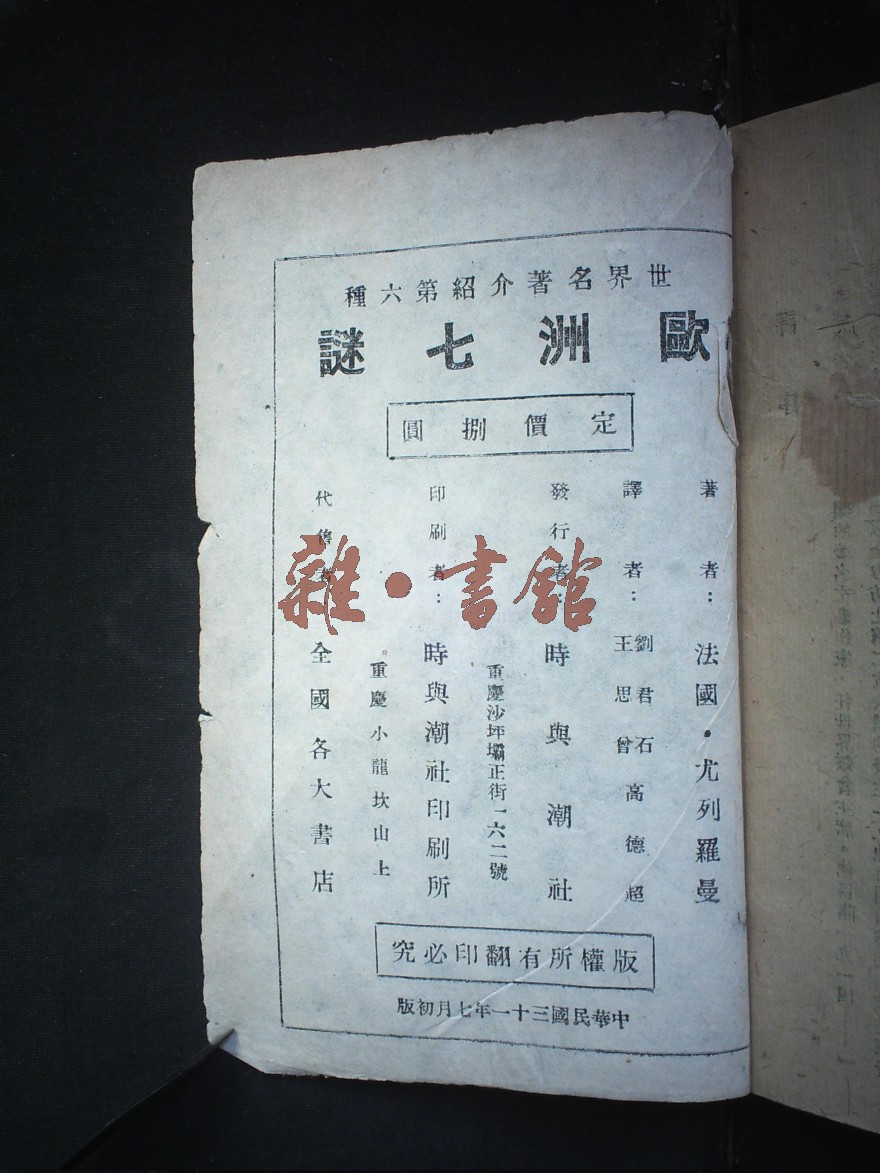 世界名著介紹第六種
歐洲七謎
定價捌圓
著者：法國・尤列羅曼
譯者：劉君石 高德超 王思曾
發行者：時與潮社
重慶沙坪壩正街一六二號
印刷者：時與潮社印刷所
重慶小龍坎山上
代售者 全國各大書店
版權所有翻印必究
中華民國三十一年七月初版
雜・書館